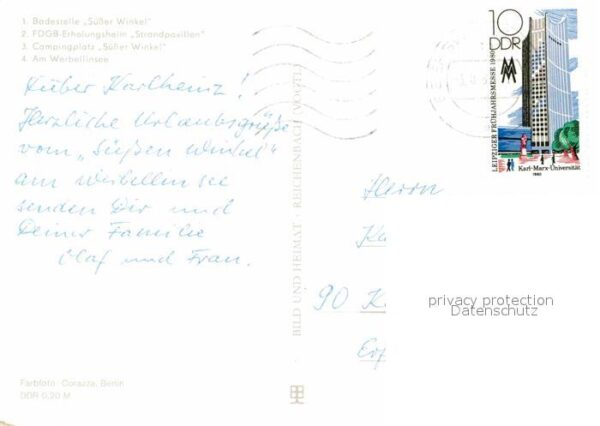 1. Badestelle „Süßer Winkel"
2. FDGB-Erholungsheim „Strandpavillon"
3. Campingplatz „Süßer Winkel"
4. Am Werbellinsee
Lieber Karlheinz!
Herzliche Urlaubsgrüße
vom „Süßen Winkel"
am Werbellinsee
senden Dir und
Deiner Familie
Olaf und Frau.
Farbfoto: Corazza, Berlin
DDR 0,20 M
BILD UND HEIMAT · REICHENBACH (VOGTL)
10
DDR
MM
LEIPZIGER FRÜHJAHRSMESSE 1980
Karl-Marx-Universität
1980
Herrn
Ka
90 K
Erf
privacy protection
Datenschutz